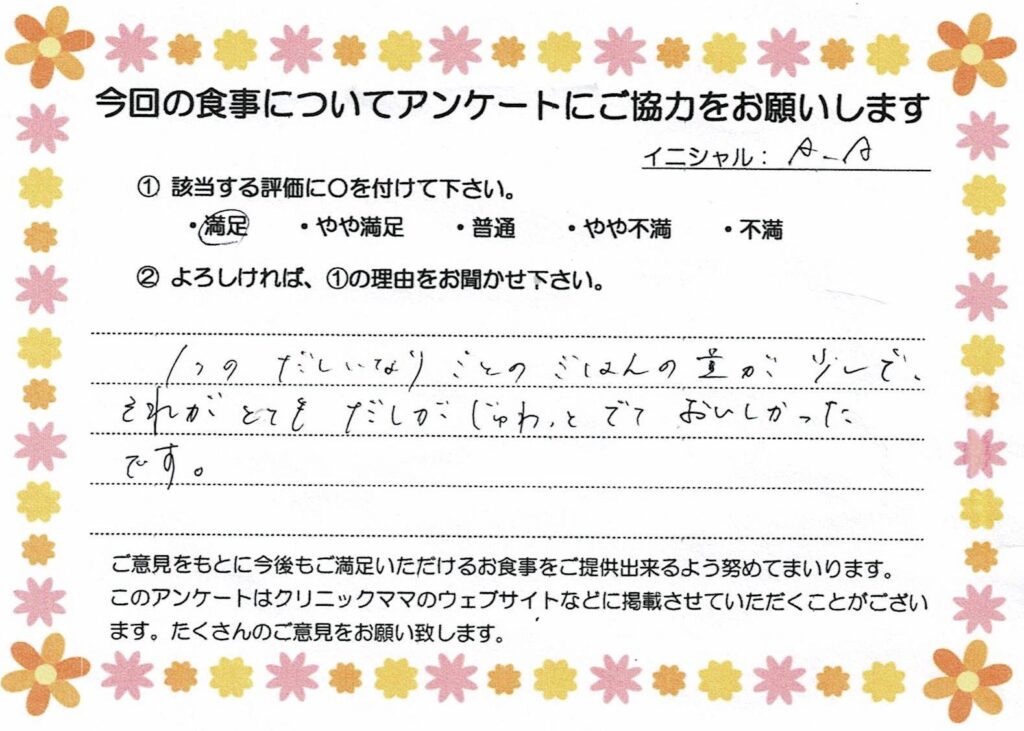 今回の食事についてアンケートにご協力をお願いします
イニシャル： A-A
① 該当する評価に〇を付けて下さい。
・満足 ・やや満足 ・普通 ・やや不満 ・不満
② よろしければ、①の理由をお聞かせ下さい。
1つの だしいなり ごとの ごはんの 量が 少しで、
それが とても だしが じゅわっと でて おいしかった
です。
ご意見をもとに今後もご満足いただけるお食事をご提供出来るよう努めてまいります。
このアンケートはクリニックママのウェブサイトなどに掲載させていただくことがござい
ます。たくさんのご意見をお願い致します。